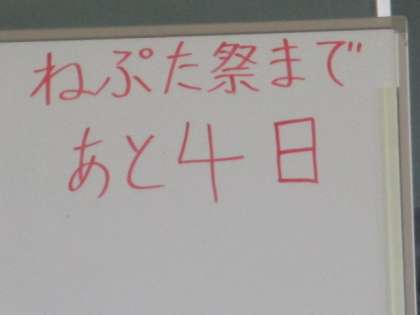 ねぷた祭まで
あと4日